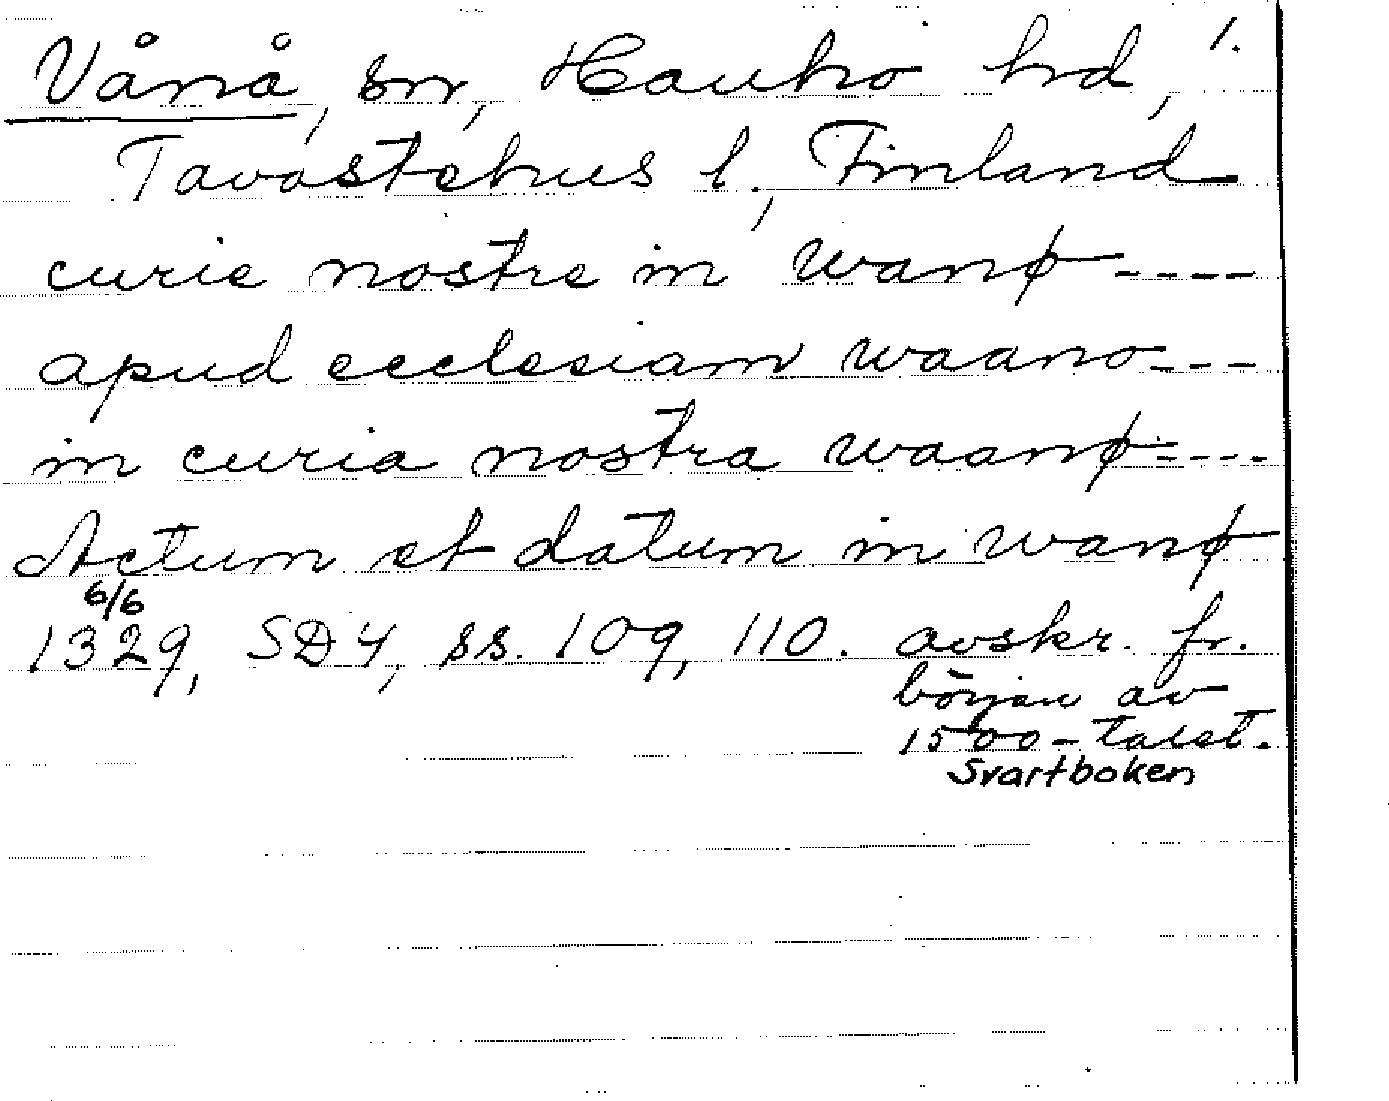 Vånå, sn, Hauho hrd, 1.
Tavastehus l., Finland
curie nostre in wanø ----
apud ecclesiam waano---
in curia nostra waanø----
Actum et datum in wanø
6/6
1329, SD4, ss. 109, 110. avskr. fr.
början av
1500-talet.
Svartboken